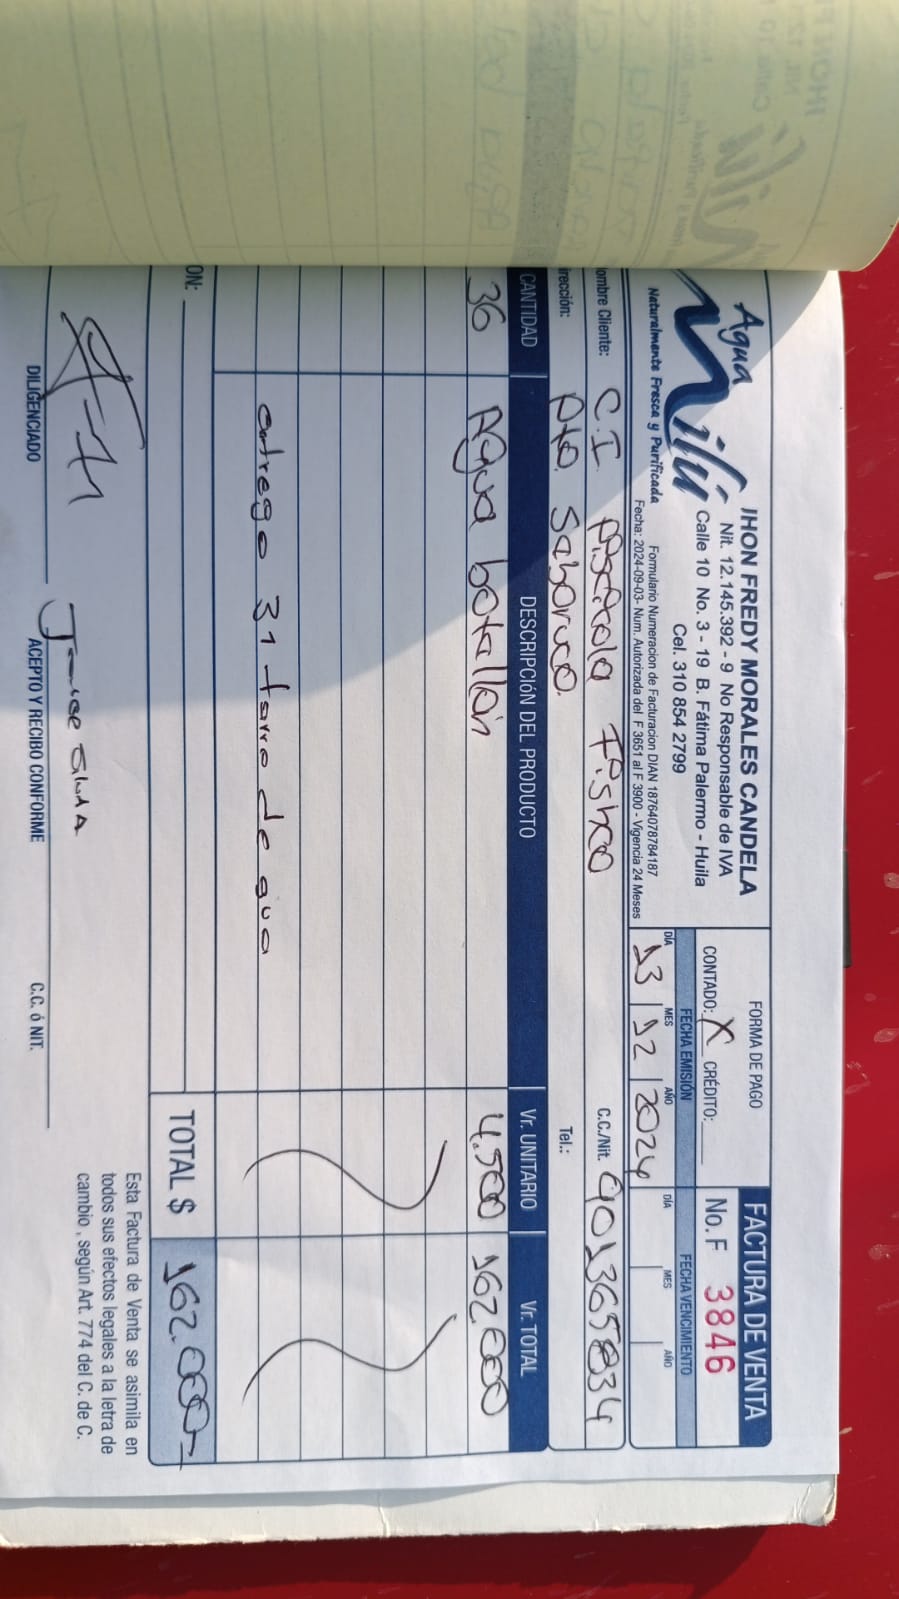 Agua Nilú
Naturalmente Fresca y Purificada
JHON FREDY MORALES CANDELA
Nit. 12.145.392 - 9 No Responsable de IVA
Calle 10 No. 3 - 19 B. Fátima Palermo - Huila
Cel. 310 854 2799
Formulario Numeracion de Facturacion DIAN 18764078784187
Fecha: 2024-09-03- Num. Autorizada del F 3651 al F 3900 - Vigencia 24 Meses
FORMA DE PAGO
CONTADO: X CRÉDITO:
FACTURA DE VENTA
No. F 3846
FECHA EMISIÓN
DÍA MES AÑO
13 12 2024
FECHA VENCIMIENTO
DÍA MES AÑO
ombre Cliente: C.I. Piscicola Fishco
C.C./Nit. 901365834
irección: Pto Seboruco
Tel.:
CANTIDAD DESCRIPCIÓN DEL PRODUCTO Vr. UNITARIO Vr. TOTAL
36 Agua botallón 4.500 162.000
entrego 31 tarro de agua
ON:
TOTAL $ 162.000
DILIGENCIADO
ACEPTO Y RECIBO CONFORME
C.C. ó NIT.
Esta Factura de Venta se asimila en
todos sus efectos legales a la letra de
cambio , según Art. 774 del C. de C.